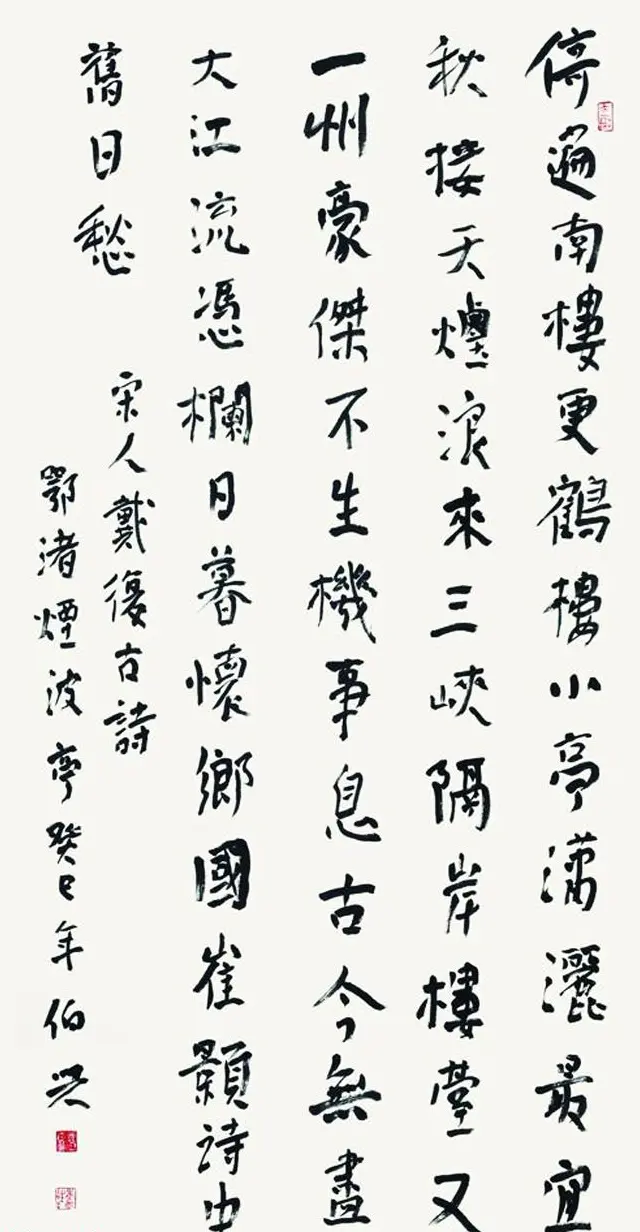 倚遍南樓更鶴樓小亭瀟灑最宜
秋接天煙浪來三峽隔岸樓臺又
一州豪傑不生機事息古今無盡
大江流憑欄日暮懷鄉國崔顥詩中
舊日愁
宋人戴復古詩
鄂渚煙波亭癸巳年伯